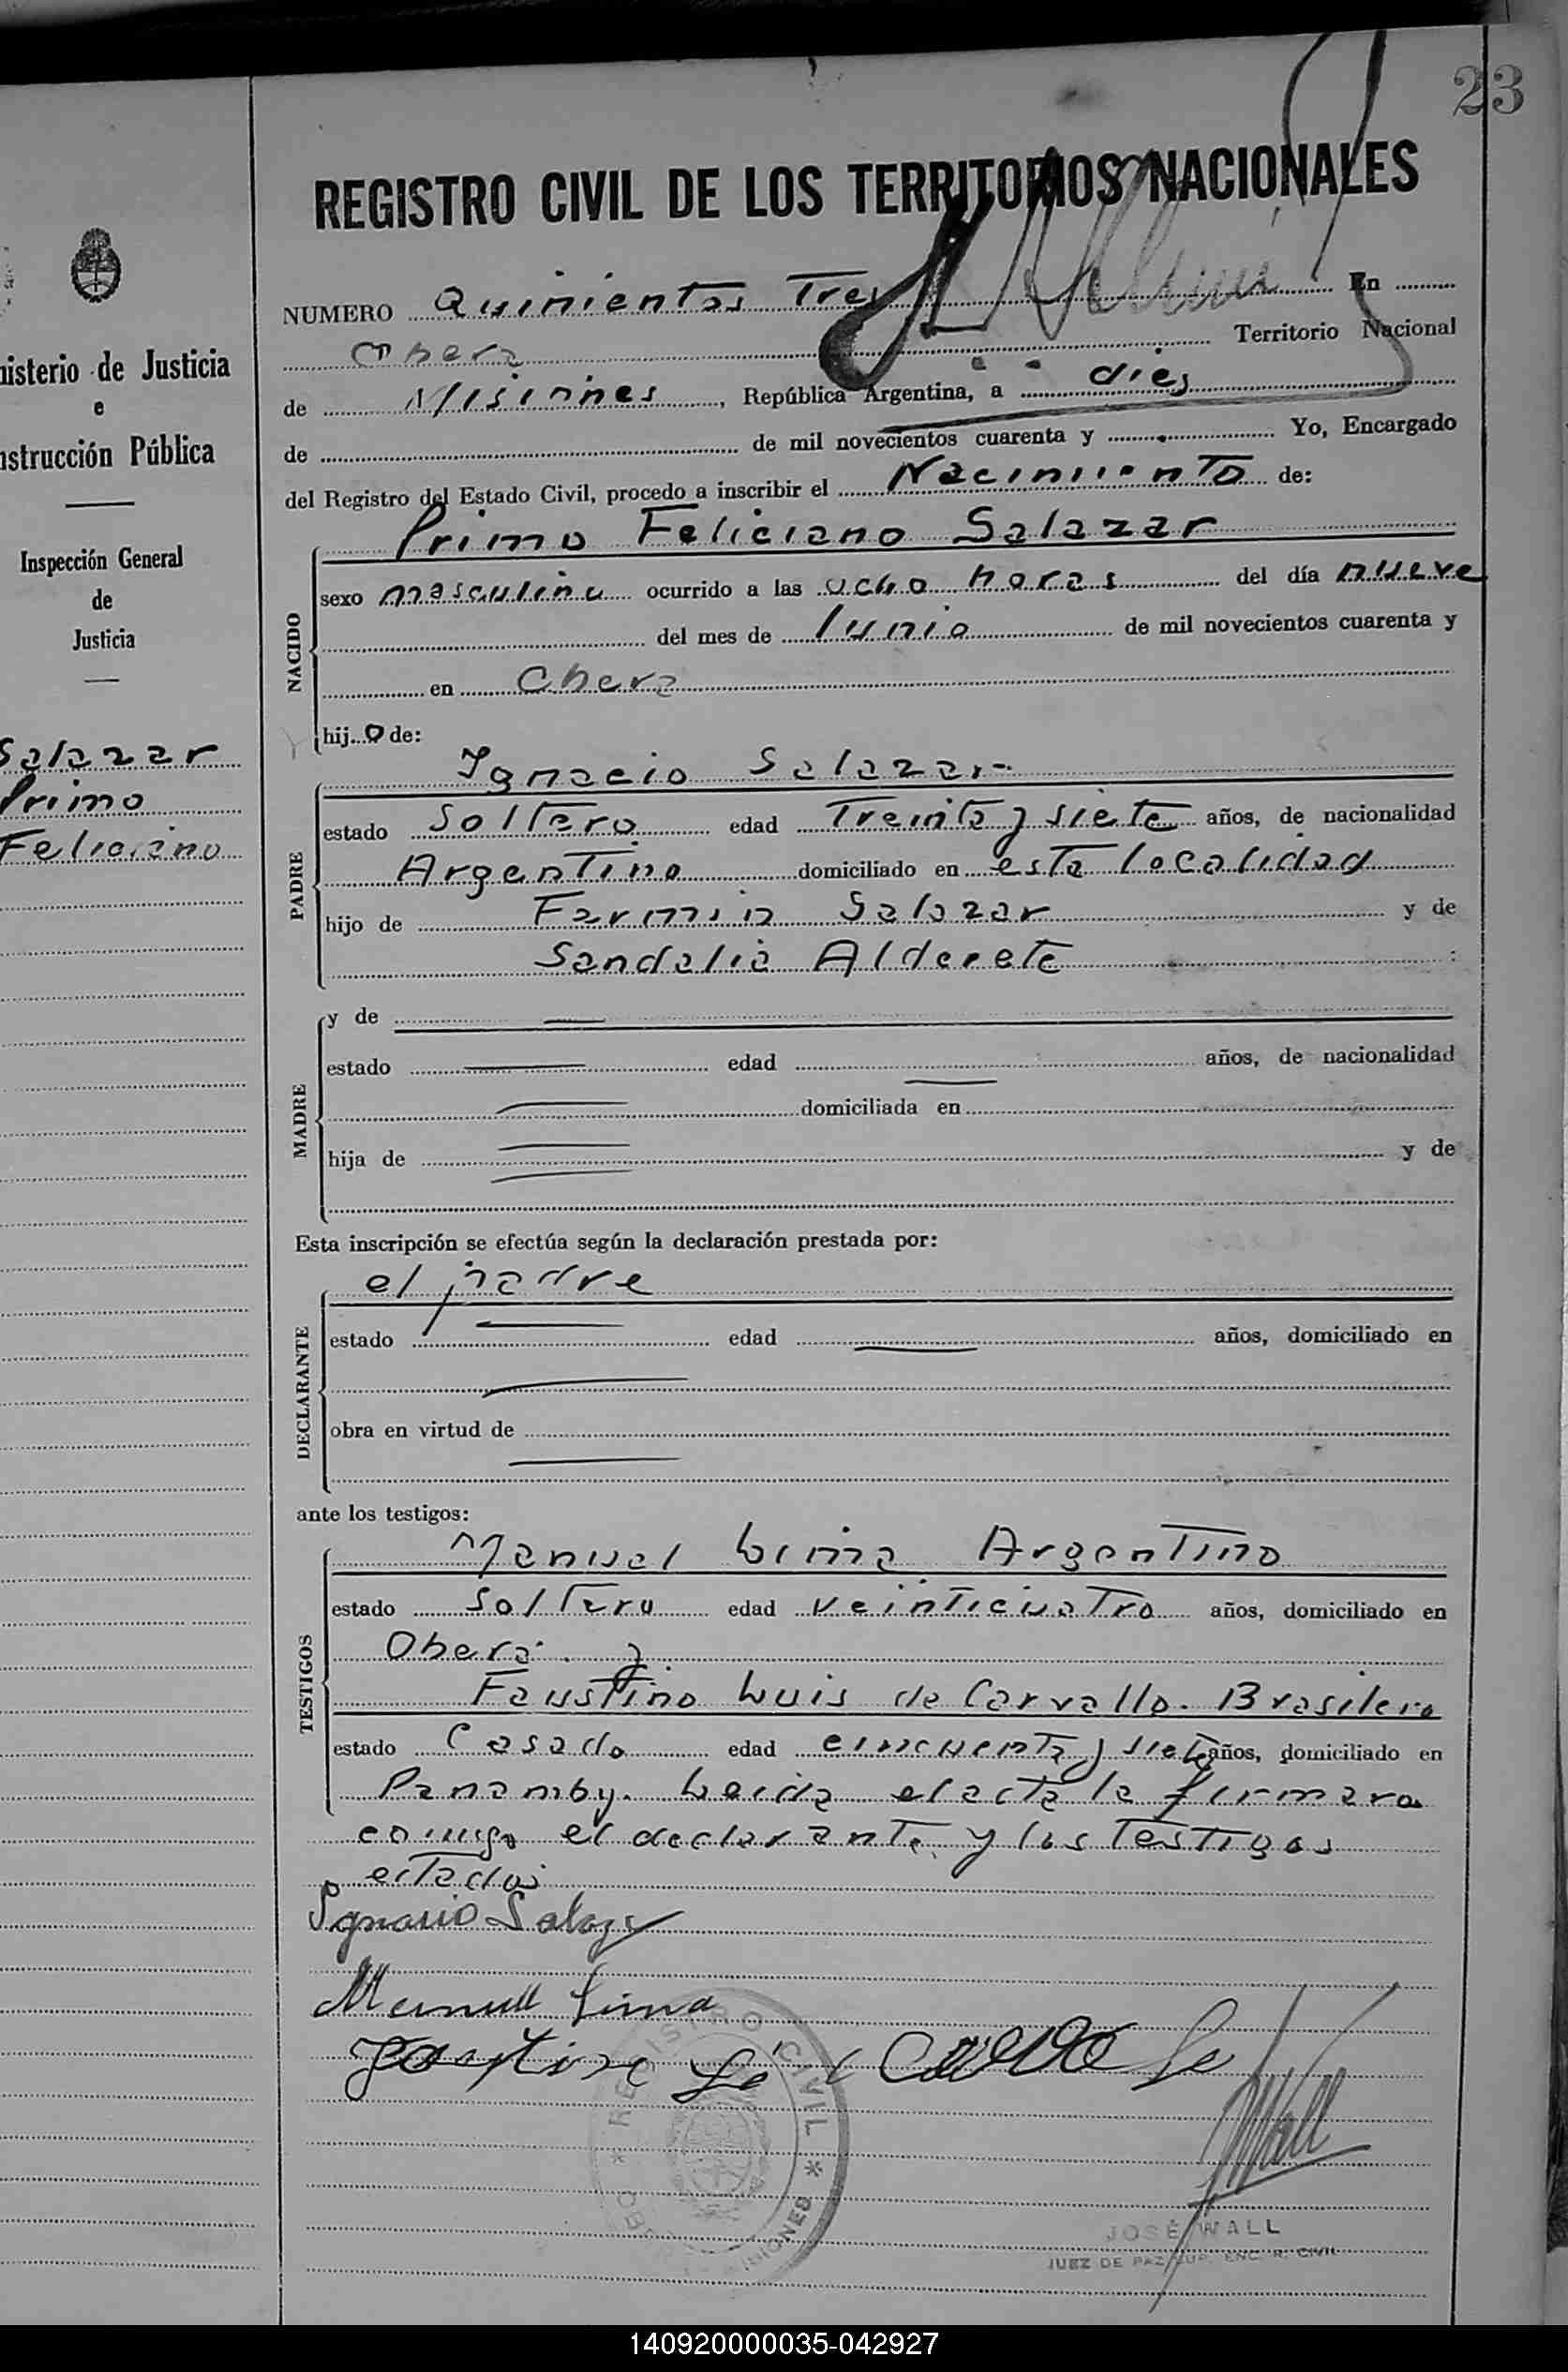 23
REGISTRO CIVIL DE LOS TERRITORIOS NACIONALES
NUMERO Quinientos Tres En
Obera Territorio Nacional
de Misiones, República Argentina, a dies
de de mil novecientos cuarenta y Yo, Encargado
del Registro del Estado Civil, procedo a inscribir el Nacimiento de:
NACIDO
Primo Feliciano Salazar
sexo masculino ocurrido a las ocho horas del día nueve
del mes de Junio de mil novecientos cuarenta y
en Obera
hijo de:
PADRE
Ignacio Salazar
estado Soltero edad Treinta y siete años, de nacionalidad
Argentino domiciliado en esta localidad
hijo de Fermin Salazar y de
Sandalia Alderete
MADRE
y de
estado edad años, de nacionalidad
domiciliada en
hija de y de
Esta inscripción se efectúa según la declaración prestada por:
DECLARANTE
el padre
estado edad años, domiciliado en
obra en virtud de
ante los testigos:
TESTIGOS
Manuel Lima Argentino
estado Soltero edad veinticuatro años, domiciliado en
Obera. y
Faustino Luis de Carvallo. Brasilero
estado Casado edad cincuenta y siete años, domiciliado en
Panamby. Leida el acta la firmaron
conmigo el declarante y los Testigos
citados
Ignacio Salazar
Manuel Lima
JOSÉ WALL
JUEZ DE PAZ SUP. ENC. R. CIVIL
REGISTRO CIVIL
MISIONES
nisterio de Justicia
e
nstrucción Pública
Inspección General
de
Justicia
Salazar
Primo
Feliciano
140920000035-042927